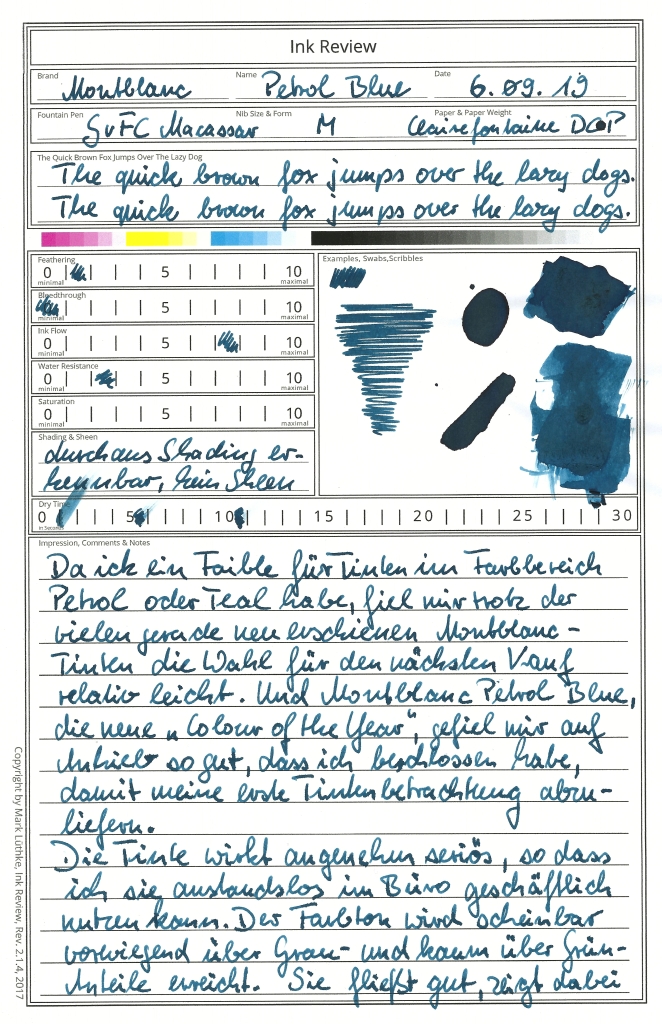 Ink Review
Brand Montblanc Name Petrol Blue Date 6.09.19
Fountain Pen GvFC Macassar Nib Size & Form M Paper & Paper Weight Clairefontaine DCP
The Quick Brown Fox Jumps Over The Lazy Dog
The quick brown fox jumps over the lazy dogs.
The quick brown fox jumps over the lazy dogs.
Feathering
0 5 10
minimal maximal
Bleedthrough
0 5 10
minimal maximal
Ink Flow
0 5 10
minimal maximal
Water Resistance
0 5 10
minimal maximal
Saturation
0 5 10
minimal maximal
Shading & Sheen
durchaus Shading er-
kennbar, kein Sheen
Examples, Swabs,Scribbles
Dry Time
0 5 10 15 20 25 30
in Seconds
Impression, Comments & Notes
Da ich ein Faible für Tinten im Farbbereich
Petrol oder Teal habe, fiel mir trotz der
vielen gerade neu erschienen Montblanc-
Tinten die Wahl für den nächsten Kauf
relativ leicht. Und Montblanc Petrol Blue,
die neue „Colour of the Year“, gefiel mir auf
Anhieb so gut, dass ich beschlossen habe,
damit meine erste Tintenbetrachtung abzu-
liefern.
Die Tinte wirkt angenehm seriös, so dass
ich sie anstandslos im Büro geschäftlich
nutzen kann. Der Farbton wird scheinbar
vorwiegend über Grau- und kaum über Grün-
Anteile erreicht. Sie fließt gut, zeigt dabei
Copyright by Mark Lüthke, Ink Review, Rev. 2.1.4, 2017